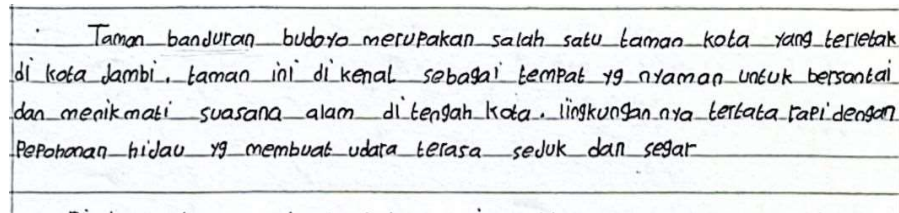 Taman banduran budoyo merupakan salah satu taman kota yang terletak
di kota Jambi. taman ini di kenal sebagai tempat yg nyaman untuk bersantai
dan menikmati suasana alam di tengah kota. lingkungan nya tertata rapi dengan
Pepohonan hijau yg membuat udara terasa sejuk dan segar